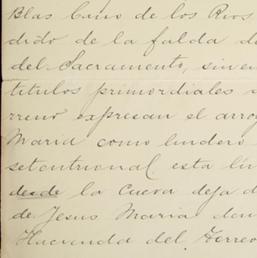 Blas Cano de los Rios
dido de la falda d
del Sacramento, sin e
titulos primordiales
rreno expresan el arro
Maria como lindero
setentrional esta lin
desde la Cueva deja d
de Jesus Maria don
Hacienda del Torreo